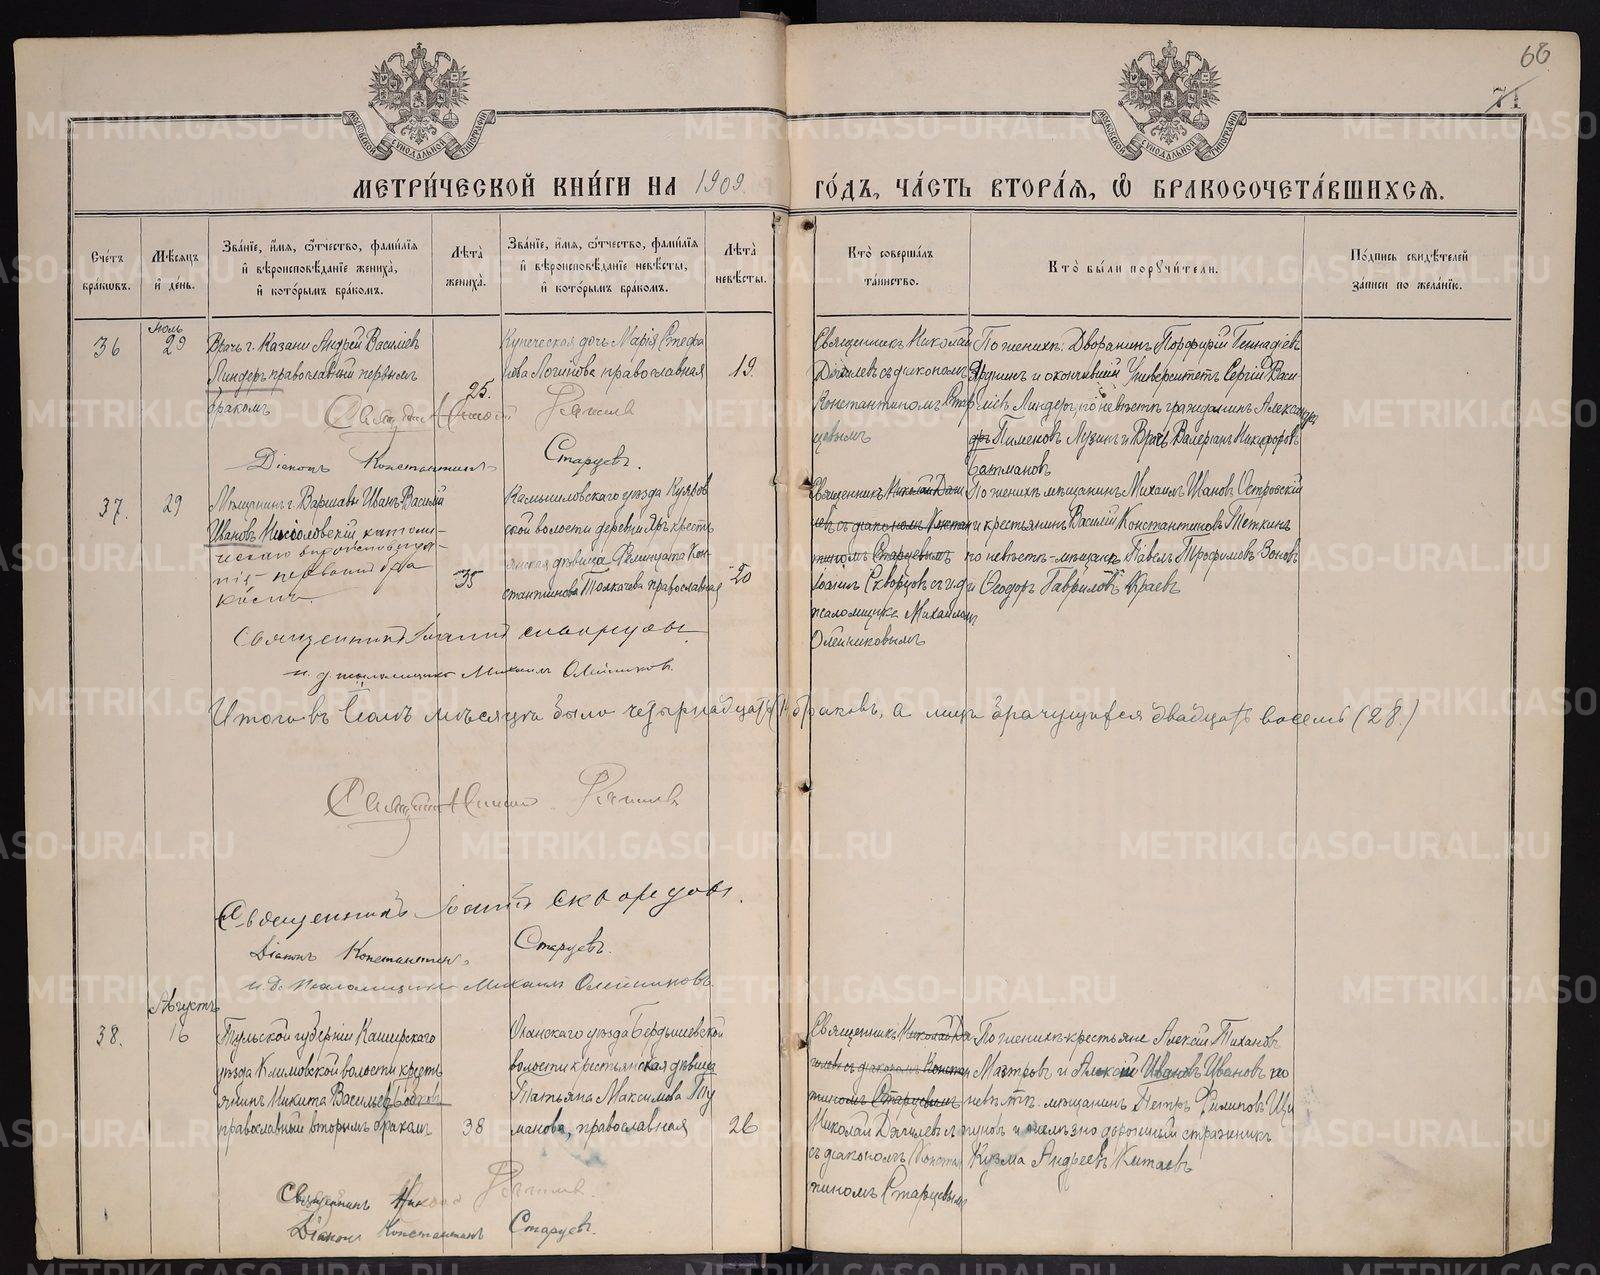 68
71
МОСКОВСКОЙ СѴНОДАЛЬНОЙ ТИПОГРАФІИ
МОСКОВСКОЙ СѴНОДАЛЬНОЙ ТИПОГРАФІИ
МЕТРИ́ЧЕСКОЙ КНИ́ГИ НА 1909 ГО́ДЪ, ЧА́СТЬ ВТОРА́Я, Ѽ БРАКОСОЧЕТА́ВШИХСЯ.
Сче́тъ
бра́ковъ.
Мѣ́сяцъ
и҆ де́нь.
Зва́нїе, и҆́мя, ѻ҆́тчество, фамі́лїя
и҆ вѣроисповѣ́данїе жениха̀,
и҆ кото́рымъ бра́комъ.
Лѣ́та
жениха̀.
Зва́нїе, и҆́мя, ѻ҆́тчество, фамі́лїя
и҆ вѣроисповѣ́данїе невѣ́сты,
и҆ кото́рымъ бра́комъ.
Лѣ́та
невѣ́сты.
Кто̀ соверша́лъ
та́инство.
Кто̀ бы́ли порꙋчи́тели.
По́дпись свидѣ́телей
за́писи по жела́нїю.
36
Іюль
29
Врачъ г. Казани Андрей Василіев
Линдеръ православный первымъ
бракомъ
25.
Купеческая дочь Марія Стефа
нова Логинова православная
19.
Священникъ Николай
Дягилевъ съ діакономъ
Константиномъ Стар
цевымъ
По женихѣ: Дворянинъ Порфирій Геннадіев
и окончившій Университетъ Сергій Васи
ліев Линдеръ, по невѣстѣ гражданинъ Александръ
Пименов и Врачъ Валеріан Никифоров
Діаконъ Константинъ Старцевъ.
37.
29
Мѣщанинъ г. Варшавы Иванъ Васильй
Иванов католи-
ческаго вѣроисповѣда-
нія - первымъ бра
комъ.
35
Камышловскаго уѣзда Куяров
ской волости деревни Яръ крестъ
янская дѣвица Фелицата Кон
стантинова Толкачева православная
20
Священникъ Николай Дяги
левъ съ діакономъ Констан
тиномъ Старцевымъ
Іоаннъ Скворцовъ съ и.д.
псаломщика Михаиломъ
Олейниковымъ
По женихѣ мѣщанинъ Михаилъ Иванов Островскій
и крестьянинъ Василій Константинов Теткинъ
по невѣстѣ - мѣщане Павелъ Трофимовъ Зоновъ
и Ѳеодоръ Гавриловъ Краевъ
Священникъ Іоаннъ Скворцовъ
и. д. псаломщика Михаилъ Олейниковъ.
Итого въ Іюлѣ мѣсяцѣ было четырнадцать (14) браковъ, а лицъ брачущихся двадцать восемь (28.)
Священникъ Іоаннъ Скворцовъ.
Діаконъ Константинъ Старцевъ.
и. д. Псаломщика Михаилъ Олейниковъ.
38.
Августъ
16
Тульской губерніи Каширскаго
уѣзда Климовской волости кресть
янинъ Никита Васильевъ
православный вторымъ бракомъ
38
Оханскаго уѣзда Бердышевской
волости крестьянская дѣвица
Татьяна Максимова Ту
манова, православная
26
Священникъ Николай Дя
гилевъ съ діакономъ Констан
тиномъ Старцевымъ
Николай Дягилевъ
съ діакономъ Констан
тиномъ Старцевымъ
По женихѣ крестьяне Алексѣй Тиханов
и Алексѣй Ивановъ Ивановъ по
невѣстѣ: мѣщанинъ Петръ Филипов Щи
пуновъ и желѣзнодорожный стражникъ
Кузма Андреевъ Китаевъ
Священникъ Николай Дягилевъ
Діаконъ Константинъ Старцевъ.
METRIKI.GASO-URAL.RU